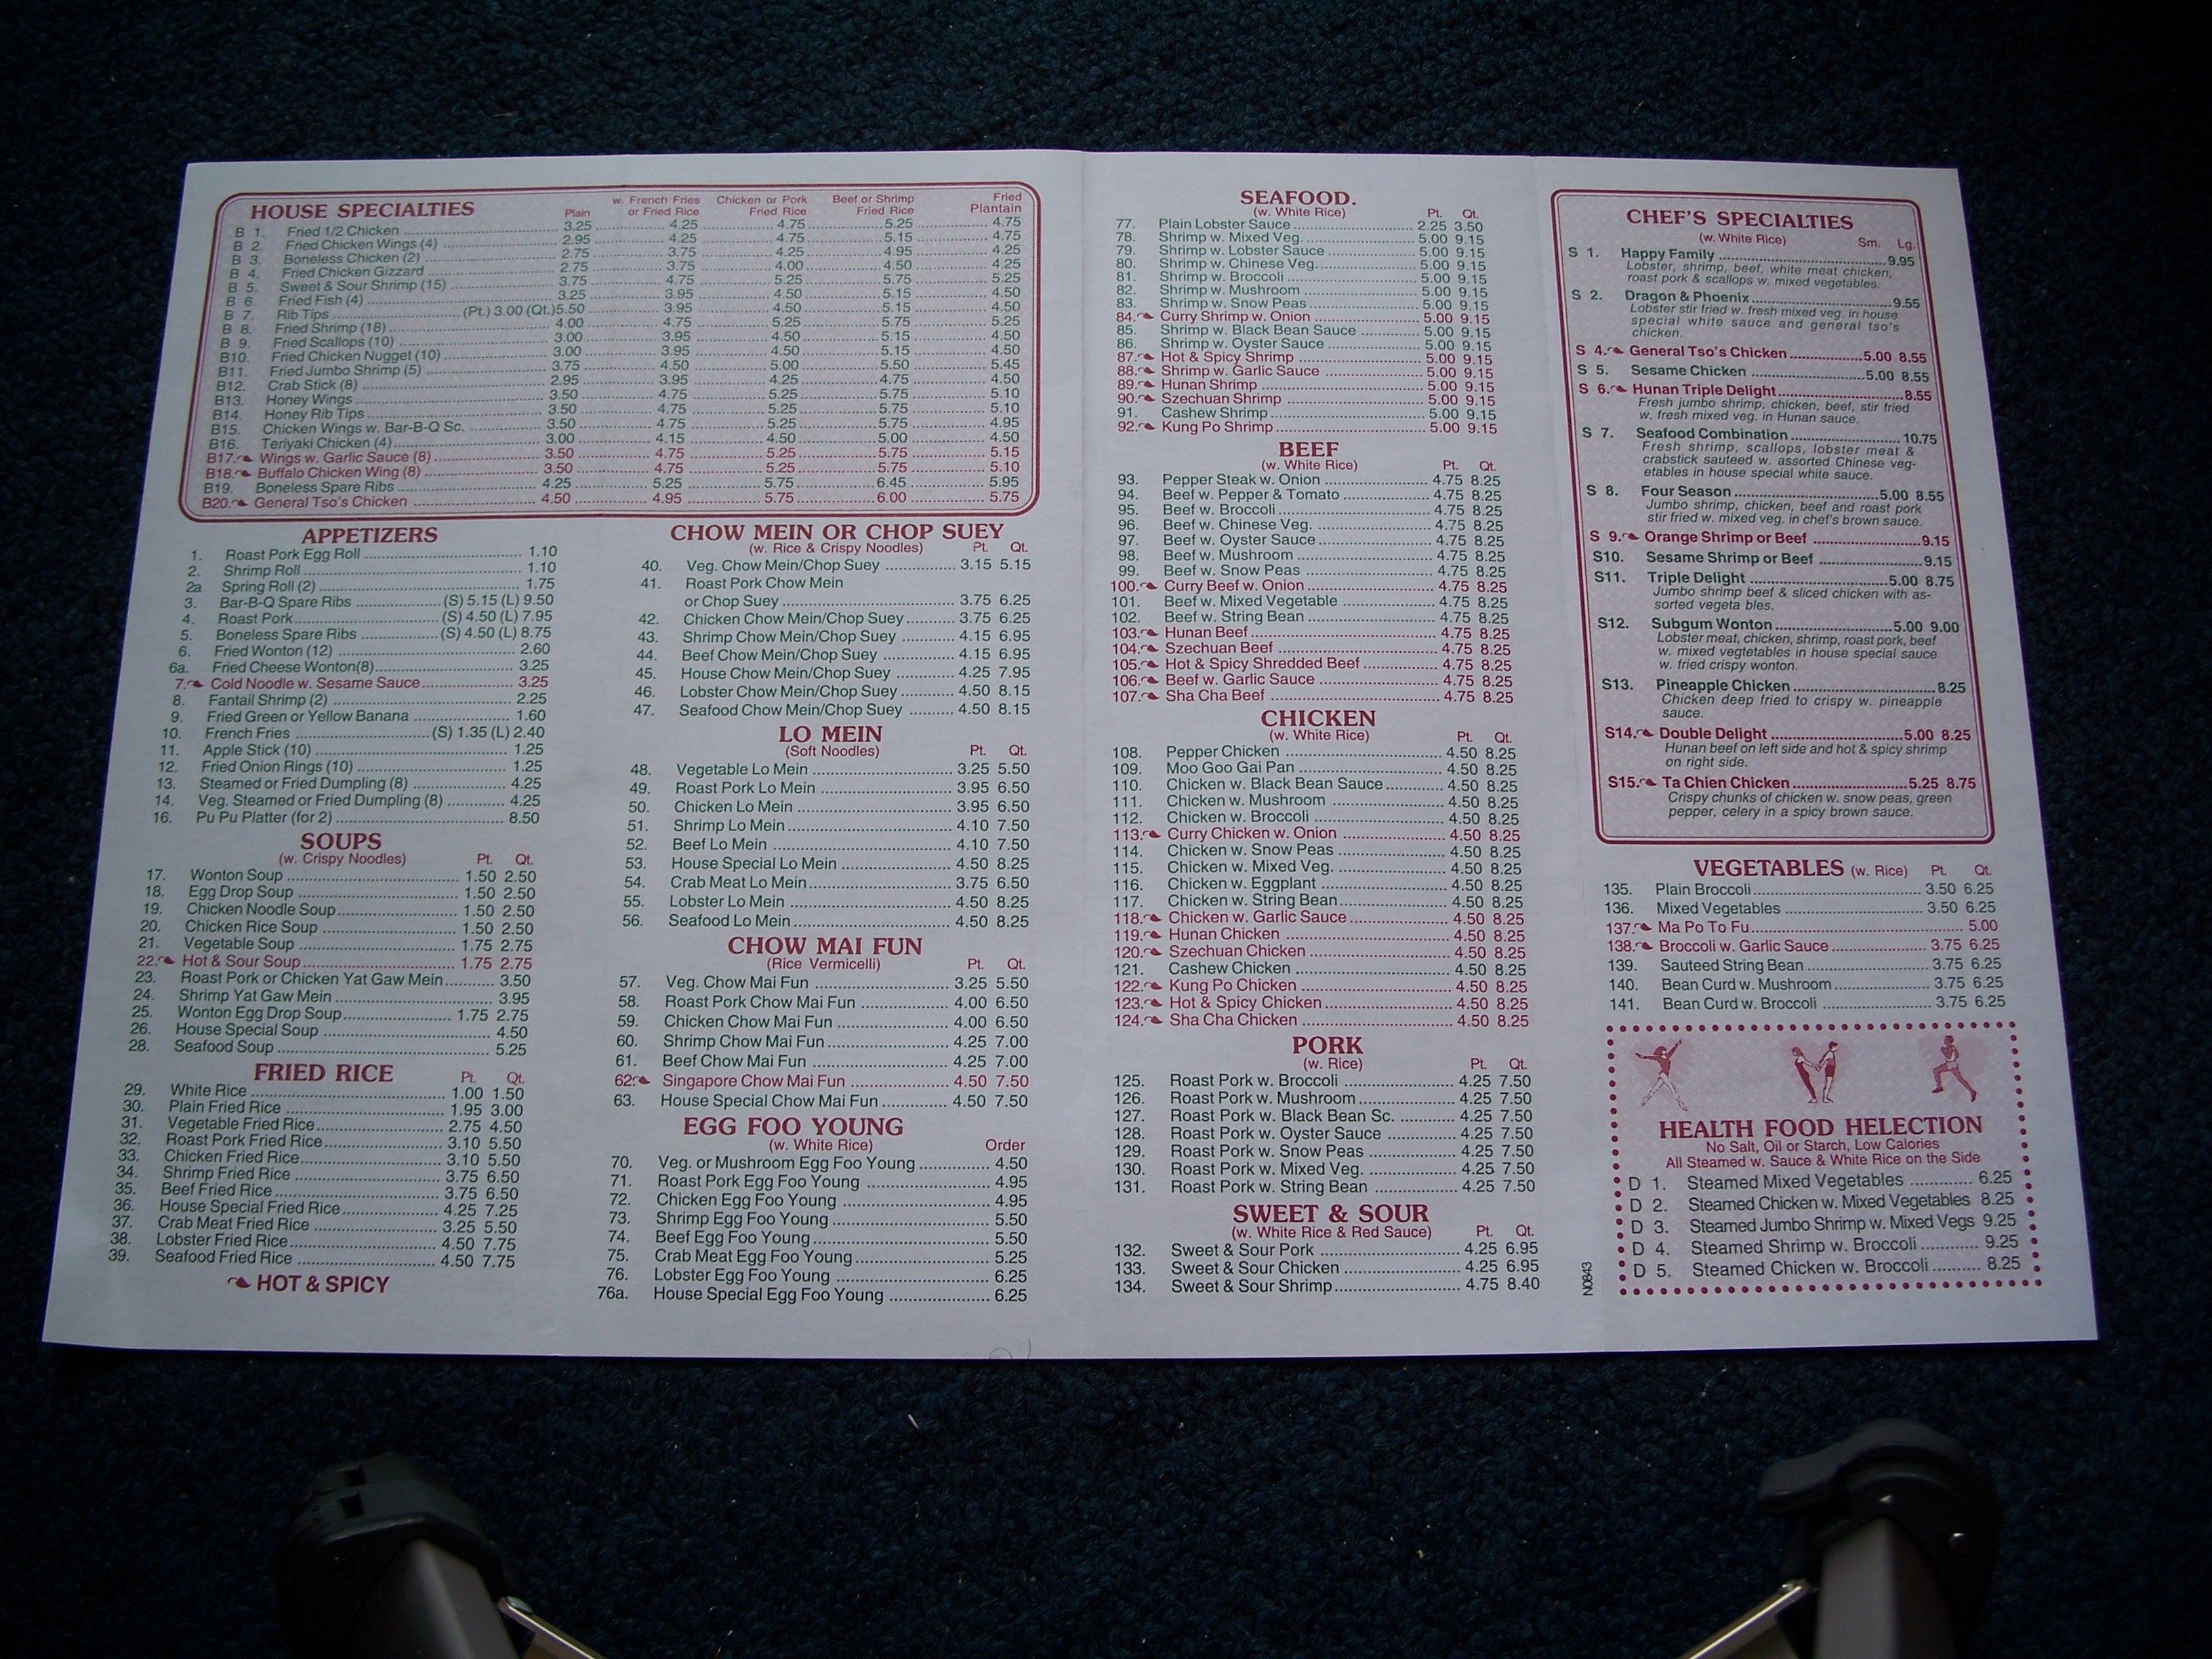 HOUSE SPECIALTIES
Plain
w. French Fries or Fried Rice
Chicken or Pork Fried Rice
Beef or Shrimp Fried Rice
Fried Plantain
B 1. Fried 1/2 Chicken 3.25 4.25 4.75 5.25 4.75
B 2. Fried Chicken Wings (4) 2.95 4.25 4.75 5.15 4.75
B 3. Boneless Chicken (2) 2.75 3.75 4.25 4.95 4.25
B 4. Fried Chicken Gizzard 2.75 3.75 4.00 4.50 4.25
B 5. Sweet & Sour Shrimp (15) 3.75 4.75 5.25 5.75 5.25
B 6. Fried Fish (4) 3.25 3.95 4.50 5.15 4.50
B 7. Rib Tips (Pt.) 3.00 (Qt.)5.50 3.95 4.50 5.15 4.50
B 8. Fried Shrimp (18) 4.00 4.75 5.25 5.75 5.25
B 9. Fried Scallops (10) 3.00 3.95 4.50 5.15 4.50
B10. Fried Chicken Nugget (10) 3.00 3.95 4.50 5.15 4.50
B11. Fried Jumbo Shrimp (5) 3.75 4.50 5.00 5.50 5.45
B12. Crab Stick (8) 2.95 3.95 4.25 4.75 4.50
B13. Honey Wings 3.50 4.75 5.25 5.75 5.10
B14. Honey Rib Tips 3.50 4.75 5.25 5.75 5.10
B15. Chicken Wings w. Bar-B-Q Sc. 3.50 4.75 5.25 5.75 4.95
B16. Teriyaki Chicken (4) 3.00 4.15 4.50 5.00 4.50
B17. Wings w. Garlic Sauce (8) 3.50 4.75 5.25 5.75 5.15
B18. Buffalo Chicken Wing (8) 3.50 4.75 5.25 5.75 5.10
B19. Boneless Spare Ribs 4.25 5.25 5.75 6.45 5.95
B20. General Tso's Chicken 4.50 4.95 5.75 6.00 5.75
APPETIZERS
1. Roast Pork Egg Roll 1.10
2. Shrimp Roll 1.10
2a Spring Roll (2) 1.75
3. Bar-B-Q Spare Ribs (S) 5.15 (L) 9.50
4. Roast Pork (S) 4.50 (L) 7.95
5. Boneless Spare Ribs (S) 4.50 (L) 8.75
6. Fried Wonton (12) 2.60
6a. Fried Cheese Wonton(8) 3.25
7. Cold Noodle w. Sesame Sauce 3.25
8. Fantail Shrimp (2) 2.25
9. Fried Green or Yellow Banana 1.60
10. French Fries (S) 1.35 (L) 2.40
11. Apple Stick (10) 1.25
12. Fried Onion Rings (10) 1.25
13. Steamed or Fried Dumpling (8) 4.25
14. Veg. Steamed or Fried Dumpling (8) 4.25
16. Pu Pu Platter (for 2) 8.50
SOUPS
(w. Crispy Noodles) Pt. Qt.
17. Wonton Soup 1.50 2.50
18. Egg Drop Soup 1.50 2.50
19. Chicken Noodle Soup 1.50 2.50
20. Chicken Rice Soup 1.50 2.50
21. Vegetable Soup 1.75 2.75
22. Hot & Sour Soup 1.75 2.75
23. Roast Pork or Chicken Yat Gaw Mein 3.50
24. Shrimp Yat Gaw Mein 3.95
25. Wonton Egg Drop Soup 1.75 2.75
26. House Special Soup 4.50
28. Seafood Soup 5.25
FRIED RICE Pt. Qt.
29. White Rice 1.00 1.50
30. Plain Fried Rice 1.95 3.00
31. Vegetable Fried Rice 2.75 4.50
32. Roast Pork Fried Rice 3.10 5.50
33. Chicken Fried Rice 3.10 5.50
34. Shrimp Fried Rice 3.75 6.50
35. Beef Fried Rice 3.75 6.50
36. House Special Fried Rice 4.25 7.25
37. Crab Meat Fried Rice 3.25 5.50
38. Lobster Fried Rice 4.50 7.75
39. Seafood Fried Rice 4.50 7.75
HOT & SPICY
CHOW MEIN OR CHOP SUEY
(w. Rice & Crispy Noodles) Pt. Qt.
40. Veg. Chow Mein/Chop Suey 3.15 5.15
41. Roast Pork Chow Mein
or Chop Suey 3.75 6.25
42. Chicken Chow Mein/Chop Suey 3.75 6.25
43. Shrimp Chow Mein/Chop Suey 4.15 6.95
44. Beef Chow Mein/Chop Suey 4.15 6.95
45. House Chow Mein/Chop Suey 4.25 7.95
46. Lobster Chow Mein/Chop Suey 4.50 8.15
47. Seafood Chow Mein/Chop Suey 4.50 8.15
LO MEIN
(Soft Noodles) Pt. Qt.
48. Vegetable Lo Mein 3.25 5.50
49. Roast Pork Lo Mein 3.95 6.50
50. Chicken Lo Mein 3.95 6.50
51. Shrimp Lo Mein 4.10 7.50
52. Beef Lo Mein 4.10 7.50
53. House Special Lo Mein 4.50 8.25
54. Crab Meat Lo Mein 3.75 6.50
55. Lobster Lo Mein 4.50 8.25
56. Seafood Lo Mein 4.50 8.25
CHOW MAI FUN
(Rice Vermicelli) Pt. Qt.
57. Veg. Chow Mai Fun 3.25 5.50
58. Roast Pork Chow Mai Fun 4.00 6.50
59. Chicken Chow Mai Fun 4.00 6.50
60. Shrimp Chow Mai Fun 4.25 7.00
61. Beef Chow Mai Fun 4.25 7.00
62. Singapore Chow Mai Fun 4.50 7.50
63. House Special Chow Mai Fun 4.50 7.50
EGG FOO YOUNG
(w. White Rice) Order
70. Veg. or Mushroom Egg Foo Young 4.50
71. Roast Pork Egg Foo Young 4.95
72. Chicken Egg Foo Young 4.95
73. Shrimp Egg Foo Young 5.50
74. Beef Egg Foo Young 5.50
75. Crab Meat Egg Foo Young 5.25
76. Lobster Egg Foo Young 6.25
76a. House Special Egg Foo Young 6.25
SEAFOOD.
(w. White Rice) Pt. Qt.
77. Plain Lobster Sauce 2.25 3.50
78. Shrimp w. Mixed Veg. 5.00 9.15
79. Shrimp w. Lobster Sauce 5.00 9.15
80. Shrimp w. Chinese Veg. 5.00 9.15
81. Shrimp w. Broccoli 5.00 9.15
82. Shrimp w. Mushroom 5.00 9.15
83. Shrimp w. Snow Peas 5.00 9.15
84. Curry Shrimp w. Onion 5.00 9.15
85. Shrimp w. Black Bean Sauce 5.00 9.15
86. Shrimp w. Oyster Sauce 5.00 9.15
87. Hot & Spicy Shrimp 5.00 9.15
88. Shrimp w. Garlic Sauce 5.00 9.15
89. Hunan Shrimp 5.00 9.15
90. Szechuan Shrimp 5.00 9.15
91. Cashew Shrimp 5.00 9.15
92. Kung Po Shrimp 5.00 9.15
BEEF
(w. White Rice) Pt. Qt.
93. Pepper Steak w. Onion 4.75 8.25
94. Beef w. Pepper & Tomato 4.75 8.25
95. Beef w. Broccoli 4.75 8.25
96. Beef w. Chinese Veg. 4.75 8.25
97. Beef w. Oyster Sauce 4.75 8.25
98. Beef w. Mushroom 4.75 8.25
99. Beef w. Snow Peas 4.75 8.25
100. Curry Beef w. Onion 4.75 8.25
101. Beef w. Mixed Vegetable 4.75 8.25
102. Beef w. String Bean 4.75 8.25
103. Hunan Beef 4.75 8.25
104. Szechuan Beef 4.75 8.25
105. Hot & Spicy Shredded Beef 4.75 8.25
106. Beef w. Garlic Sauce 4.75 8.25
107. Sha Cha Beef 4.75 8.25
CHICKEN
(w. White Rice) Pt. Qt.
108. Pepper Chicken 4.50 8.25
109. Moo Goo Gai Pan 4.50 8.25
110. Chicken w. Black Bean Sauce 4.50 8.25
111. Chicken w. Mushroom 4.50 8.25
112. Chicken w. Broccoli 4.50 8.25
113. Curry Chicken w. Onion 4.50 8.25
114. Chicken w. Snow Peas 4.50 8.25
115. Chicken w. Mixed Veg. 4.50 8.25
116. Chicken w. Eggplant 4.50 8.25
117. Chicken w. String Bean 4.50 8.25
118. Chicken w. Garlic Sauce 4.50 8.25
119. Hunan Chicken 4.50 8.25
120. Szechuan Chicken 4.50 8.25
121. Cashew Chicken 4.50 8.25
122. Kung Po Chicken 4.50 8.25
123. Hot & Spicy Chicken 4.50 8.25
124. Sha Cha Chicken 4.50 8.25
PORK
(w. Rice) Pt. Qt.
125. Roast Pork w. Broccoli 4.25 7.50
126. Roast Pork w. Mushroom 4.25 7.50
127. Roast Pork w. Black Bean Sc. 4.25 7.50
128. Roast Pork w. Oyster Sauce 4.25 7.50
129. Roast Pork w. Snow Peas 4.25 7.50
130. Roast Pork w. Mixed Veg. 4.25 7.50
131. Roast Pork w. String Bean 4.25 7.50
SWEET & SOUR
(w. White Rice & Red Sauce) Pt. Qt.
132. Sweet & Sour Pork 4.25 6.95
133. Sweet & Sour Chicken 4.25 6.95
134. Sweet & Sour Shrimp 4.75 8.40
CHEF'S SPECIALTIES
(w. White Rice) Sm. Lg.
S 1. Happy Family 9.95
Lobster, shrimp, beef, white meat chicken,
roast pork & scallops w. mixed vegetables.
S 2. Dragon & Phoenix 9.55
Lobster stir fried w. fresh mixed veg. in house
special white sauce and general tso's
chicken.
S 4. General Tso's Chicken 5.00 8.55
S 5. Sesame Chicken 5.00 8.55
S 6. Hunan Triple Delight 8.55
Fresh jumbo shrimp, chicken, beef, stir fried
w. fresh mixed veg. in Hunan sauce.
S 7. Seafood Combination 10.75
Fresh shrimp, scallops, lobster meat &
crabstick sauteed w. assorted Chinese veg-
etables in house special white sauce.
S 8. Four Season 5.00 8.55
Jumbo shrimp, chicken, beef and roast pork
stir fried w. mixed veg. in chef's brown sauce.
S 9. Orange Shrimp or Beef 9.15
S10. Sesame Shrimp or Beef 9.15
S11. Triple Delight 5.00 8.75
Jumbo shrimp beef & sliced chicken with as-
sorted vegeta bles.
S12. Subgum Wonton 5.00 9.00
Lobster meat, chicken, shrimp, roast pork, beef
w. mixed vegtetables in house special sauce
w. fried crispy wonton.
S13. Pineapple Chicken 8.25
Chicken deep fried to crispy w. pineapple
sauce.
S14. Double Delight 5.00 8.25
Hunan beef on left side and hot & spicy shrimp
on right side.
S15. Ta Chien Chicken 5.25 8.75
Crispy chunks of chicken w. snow peas, green
pepper, celery in a spicy brown sauce.
VEGETABLES (w. Rice) Pt. Qt.
135. Plain Broccoli 3.50 6.25
136. Mixed Vegetables 3.50 6.25
137. Ma Po To Fu 5.00
138. Broccoli w. Garlic Sauce 3.75 6.25
139. Sauteed String Bean 3.75 6.25
140. Bean Curd w. Mushroom 3.75 6.25
141. Bean Curd w. Broccoli 3.75 6.25
HEALTH FOOD HELECTION
No Salt, Oil or Starch, Low Calories
All Steamed w. Sauce & White Rice on the Side
D 1. Steamed Mixed Vegetables 6.25
D 2. Steamed Chicken w. Mixed Vegetables 8.25
D 3. Steamed Jumbo Shrimp w. Mixed Vegs 9.25
D 4. Steamed Shrimp w. Broccoli 9.25
D 5. Steamed Chicken w. Broccoli 8.25
N0843